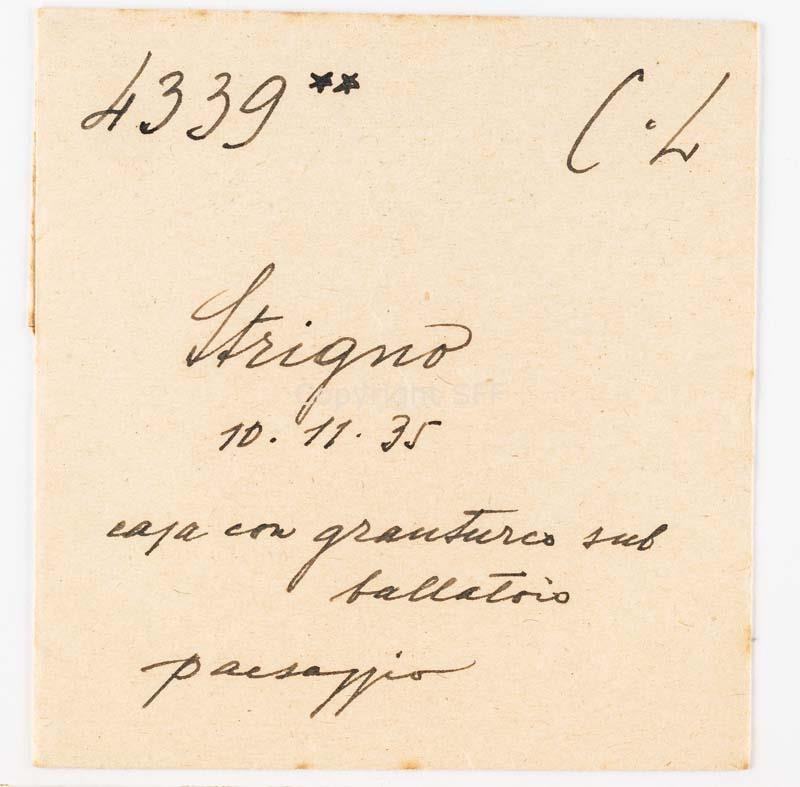 4339** C.L
Strigno
Copyright SFF
10.11.35
casa con granturco sul
ballatoio
paesaggio